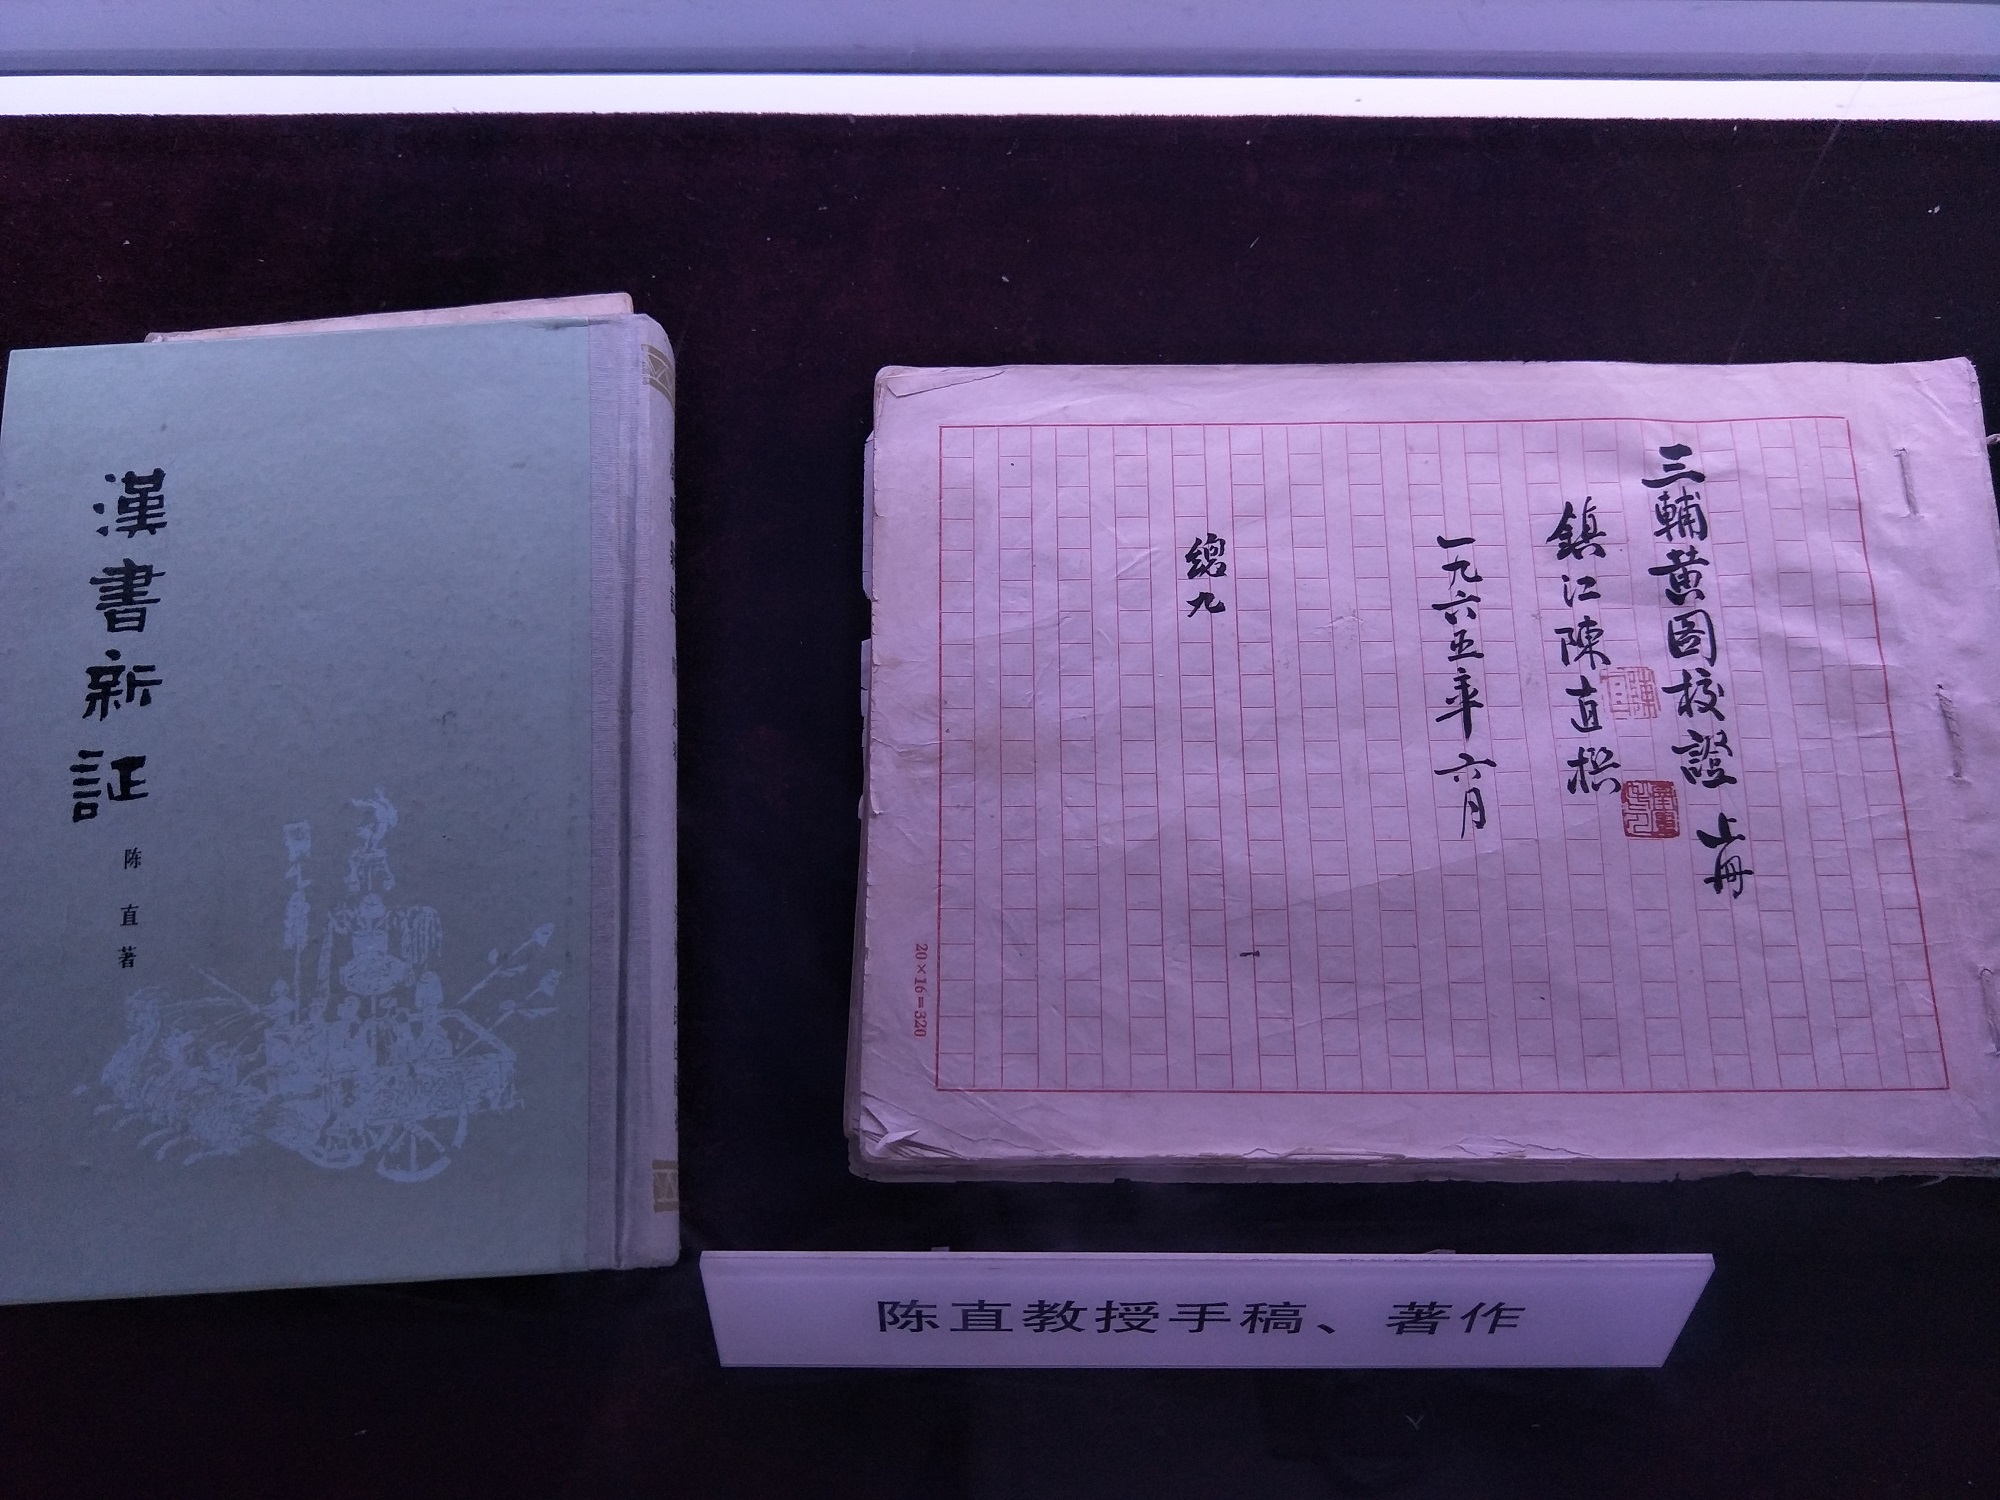 漢書新証
陈直著
三輔黄圖校證 上册
鎮江陳直撰
一九六五年六月
總九
20×16=320
陈直教授手稿、著作